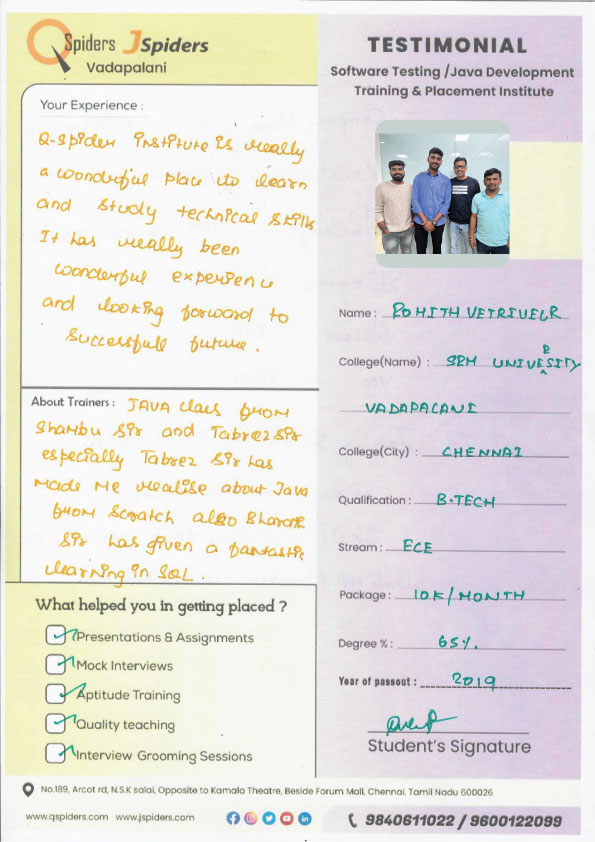 QSpiders JSpiders
Vadapalani
Your Experience :
Q-spider institute is really
a woonderful place to learn
and study technical skills
It has really been
woonderful experience
and looking forward to
successfull future.
About Trainers : JAVA class from
Shambu sir and Tabrez sir
especially Tabrez sir has
made me realise about Java
from scratch also Bharath
sir has given a fantastic
learning in SQL.
What helped you in getting placed ?
Presentations & Assignments
Mock Interviews
Aptitude Training
Quality teaching
Interview Grooming Sessions
TESTIMONIAL
Software Testing /Java Development
Training & Placement Institute
Name : ROHITH VETRIVEL R
College(Name) : SRM UNIVERSITY
VADAPALANI
College(City) : CHENNAI
Qualification : B.TECH
Stream : ECE
Package : 10K/MONTH
Degree % : 65%.
Year of passout : 2019
Student's Signature
No.189, Arcot rd, N.S.K salai, Opposite to Kamala Theatre, Beside Forum Mall, Chennai, Tamil Nadu 600026
www.qspiders.com www.jspiders.com
9840611022 / 9600122099